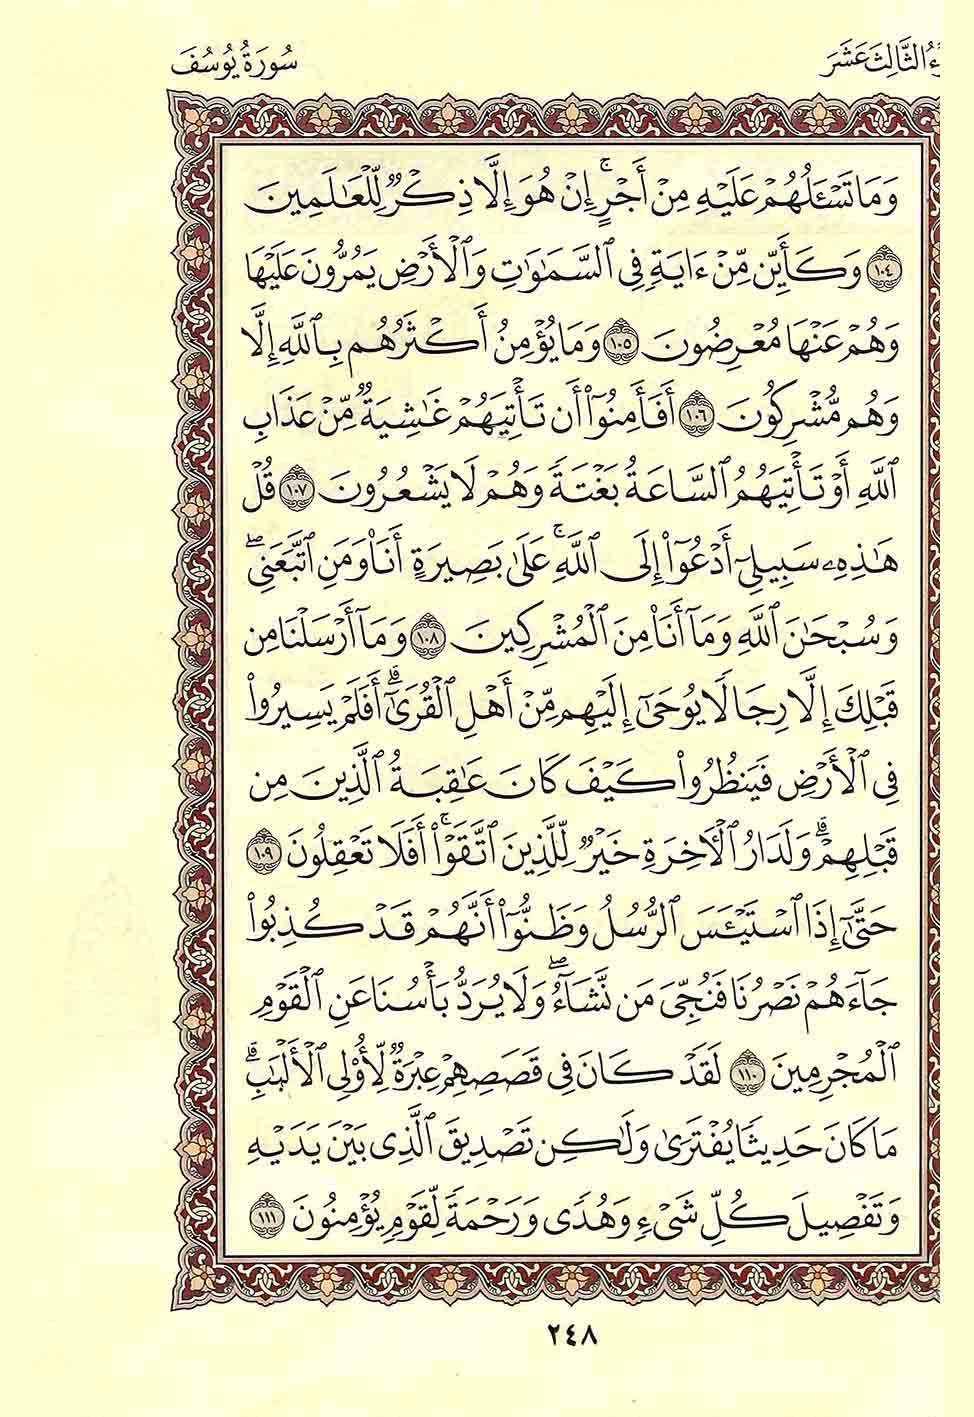 ءُ الثَّالِثَ عَشَرَ
سُورَةُ يُوسُفَ
وَمَا تَسْـَٔلُهُمْ عَلَيْهِ مِنْ أَجْرٍ ۚ إِنْ هُوَ إِلَّا ذِكْرٌ لِّلْعَـٰلَمِينَ
١٠٤ وَكَأَيِّن مِّنْ ءَايَةٍ فِى ٱلسَّمَـٰوَٰتِ وَٱلْأَرْضِ يَمُرُّونَ عَلَيْهَا
وَهُمْ عَنْهَا مُعْرِضُونَ ١٠٥ وَمَا يُؤْمِنُ أَكْثَرُهُم بِٱللَّهِ إِلَّا
وَهُم مُّشْرِكُونَ ١٠٦ أَفَأَمِنُوٓا۟ أَن تَأْتِيَهُمْ غَـٰشِيَةٌ مِّنْ عَذَابِ
ٱللَّهِ أَوْ تَأْتِيَهُمُ ٱلسَّاعَةُ بَغْتَةً وَهُمْ لَا يَشْعُرُونَ ١٠٧ قُلْ
هَـٰذِهِۦ سَبِيلِىٓ أَدْعُوٓا۟ إِلَى ٱللَّهِ ۚ عَلَىٰ بَصِيرَةٍ أَنَا۠ وَمَنِ ٱتَّبَعَنِى ۖ
وَسُبْحَـٰنَ ٱللَّهِ وَمَآ أَنَا۠ مِنَ ٱلْمُشْرِكِينَ ١٠٨ وَمَآ أَرْسَلْنَا مِن
قَبْلِكَ إِلَّا رِجَالًا يُوحَىٰٓ إِلَيْهِم مِّنْ أَهْلِ ٱلْقُرَىٰٓ ۗ أَفَلَمْ يَسِيرُوا۟
فِى ٱلْأَرْضِ فَيَنظُرُوا۟ كَيْفَ كَانَ عَـٰقِبَةُ ٱلَّذِينَ مِن
قَبْلِهِمْ ۗ وَلَدَارُ ٱلْـَٔاخِرَةِ خَيْرٌ لِّلَّذِينَ ٱتَّقَوْا۟ ۗ أَفَلَا تَعْقِلُونَ ١٠٩
حَتَّىٰٓ إِذَا ٱسْتَيْـَٔسَ ٱلرُّسُلُ وَظَنُّوٓا۟ أَنَّهُمْ قَدْ كُذِبُوا۟
جَآءَهُمْ نَصْرُنَا فَنُجِّىَ مَن نَّشَآءُ ۖ وَلَا يُرَدُّ بَأْسُنَا عَنِ ٱلْقَوْمِ
ٱلْمُجْرِمِينَ ١١٠ لَقَدْ كَانَ فِى قَصَصِهِمْ عِبْرَةٌ لِّأُو۟لِى ٱلْأَلْبَـٰبِ ۗ
مَا كَانَ حَدِيثًا يُفْتَرَىٰ وَلَـٰكِن تَصْدِيقَ ٱلَّذِى بَيْنَ يَدَيْهِ
وَتَفْصِيلَ كُلِّ شَىْءٍ وَهُدًى وَرَحْمَةً لِّقَوْمٍ يُؤْمِنُونَ ١١١
٢٤٨